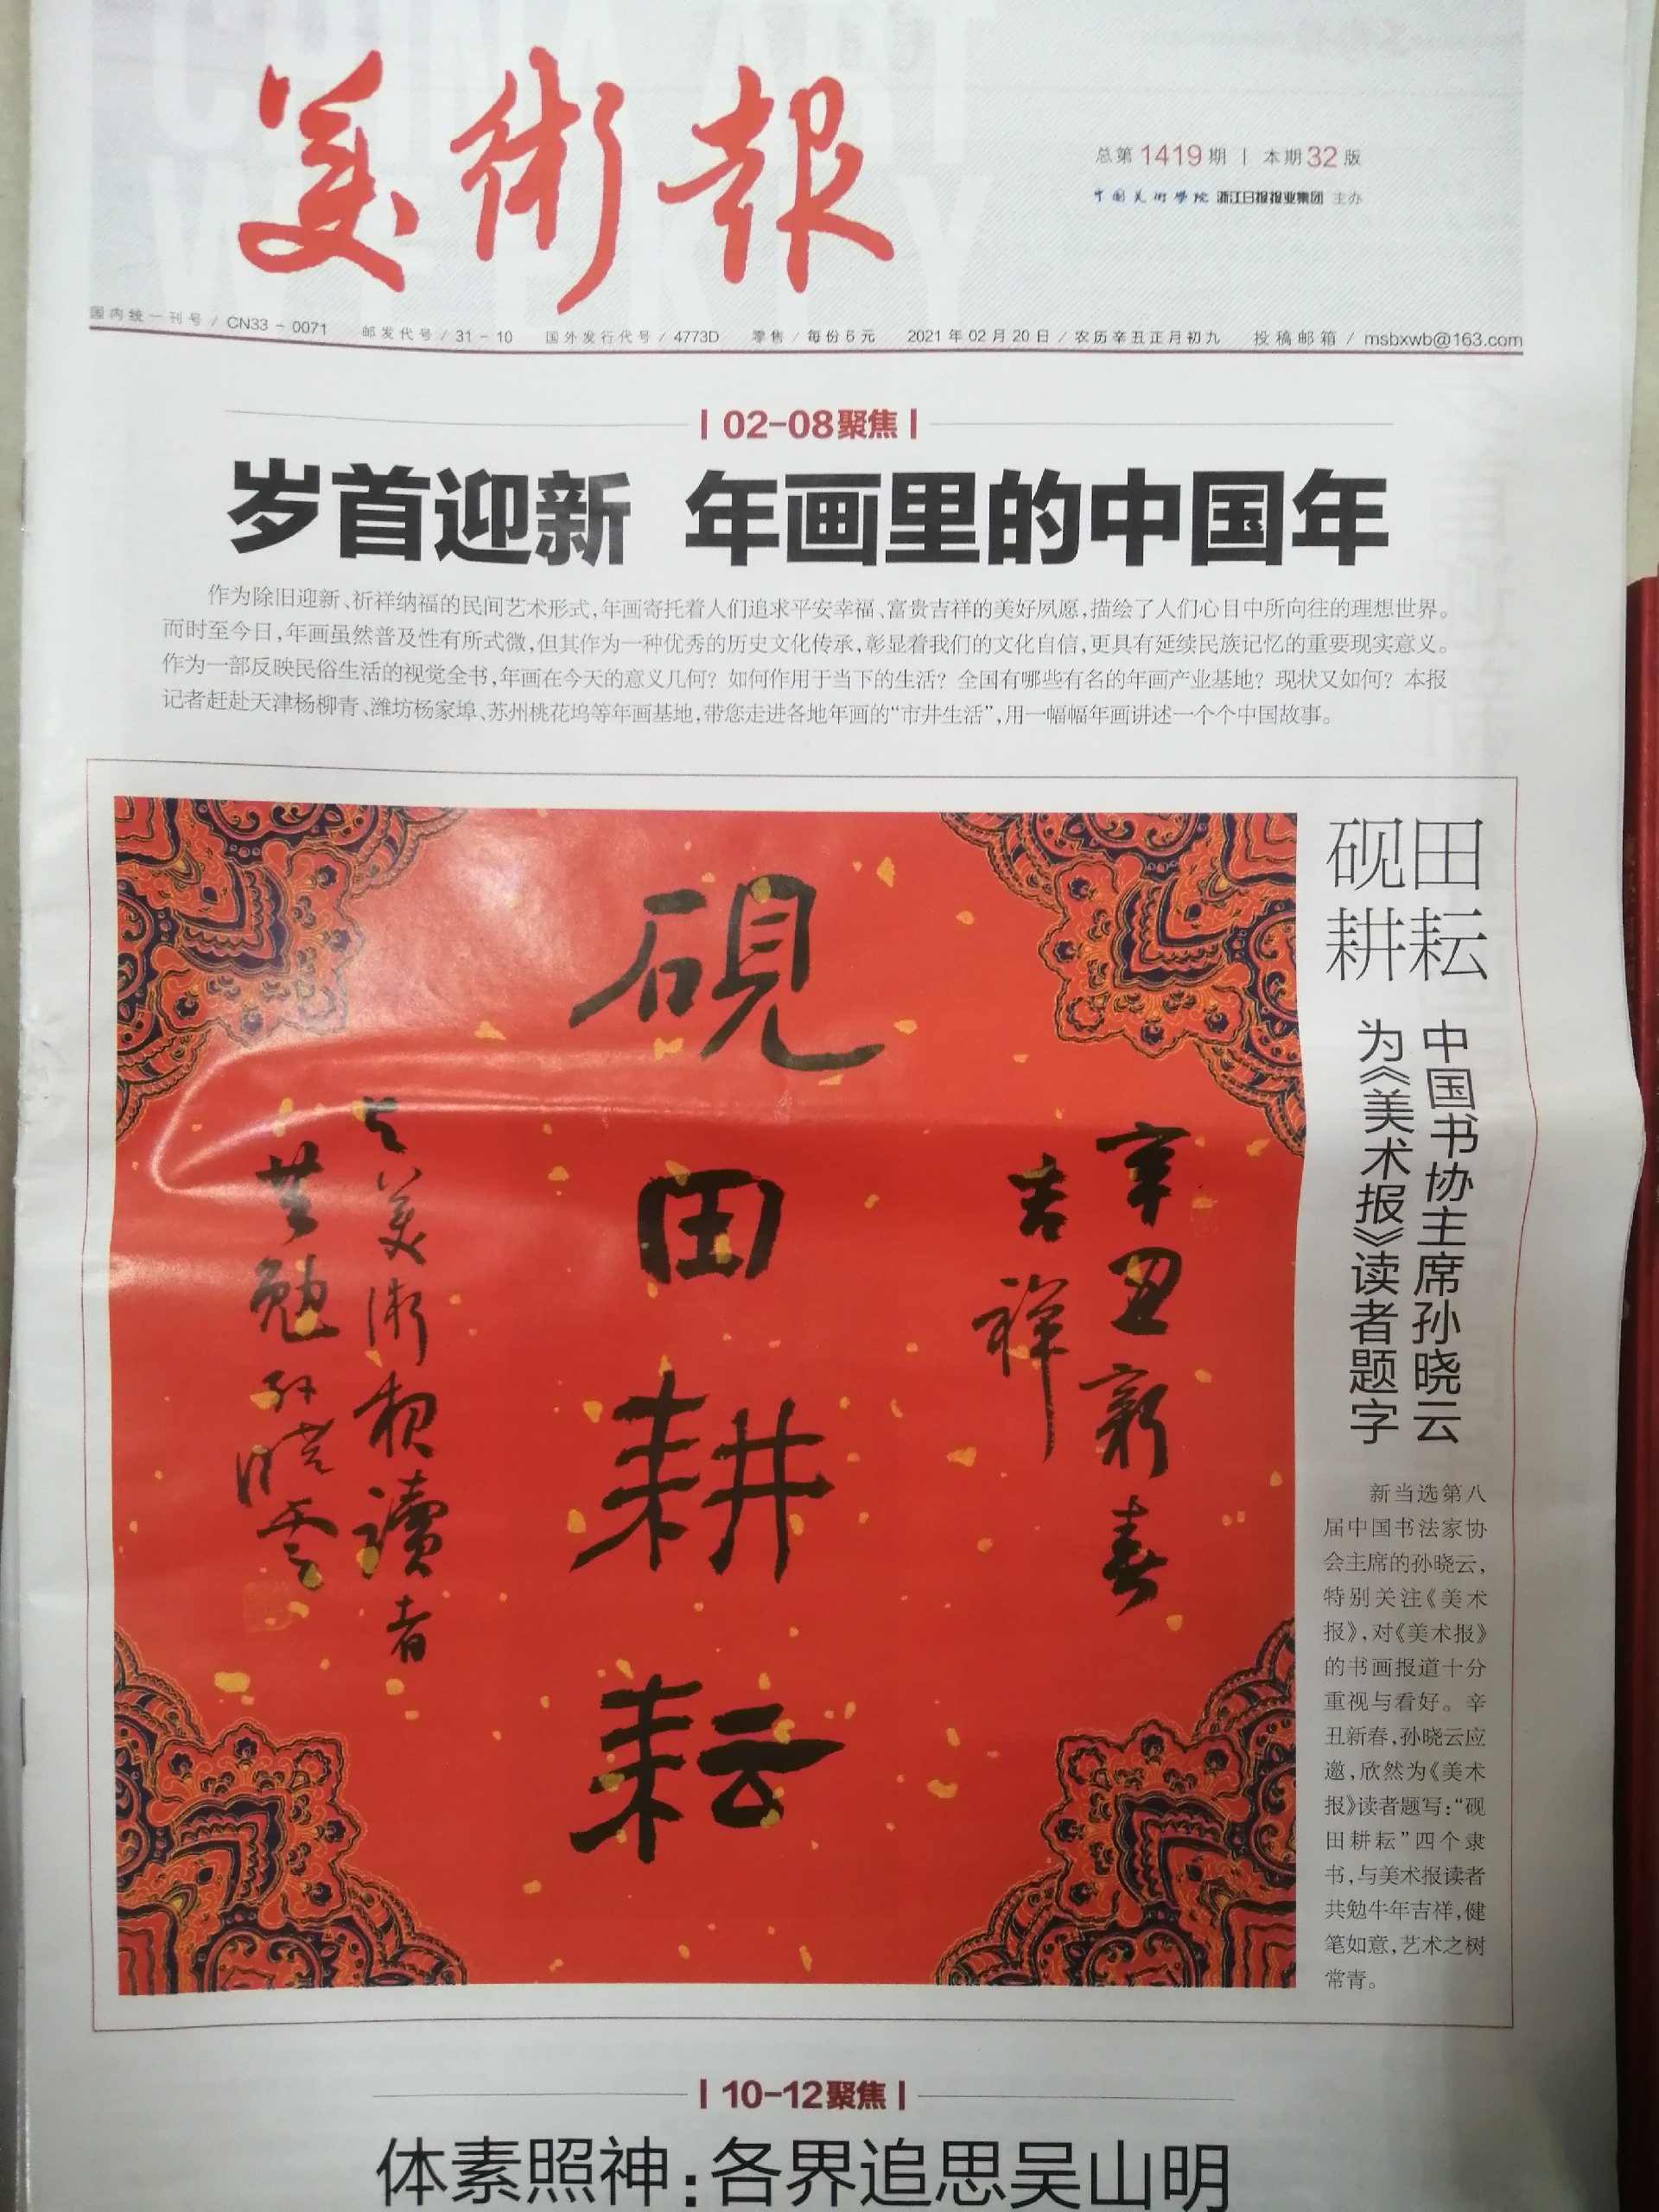 美術報
总第1419期 | 本期32版
中国美術學院 浙江日报报业集团 主办
国内统一刊号 / CN33-0071 邮发代号 / 31-10 国外发行代号 / 4773D 零售 / 每份6元 2021年02月20日 / 农历辛丑正月初九 投稿邮箱 / msbxwb@163.com
| 02-08聚焦 |
岁首迎新 年画里的中国年
作为除旧迎新、祈祥纳福的民间艺术形式,年画寄托着人们追求平安幸福、富贵吉祥的美好夙愿,描绘了人们心目中所向往的理想世界。
而时至今日,年画虽然普及性有所式微,但其作为一种优秀的历史文化传承,彰显着我们的文化自信,更具有延续民族记忆的重要现实意义。
作为一部反映民俗生活的视觉全书,年画在今天的意义几何？如何作用于当下的生活？全国有哪些有名的年画产业基地？现状又如何？本报
记者赶赴天津杨柳青、潍坊杨家埠、苏州桃花坞等年画基地,带您走进各地年画的“市井生活”,用一幅幅年画讲述一个个中国故事。
辛丑新春
吉祥
硯田耕耘
与美術报讀者
共勉孙晓雲
砚田
耕耘
中国书协主席孙晓云
为《美术报》读者题字
新当选第八
届中国书法家协
会主席的孙晓云,
特别关注《美术
报》,对《美术报》
的书画报道十分
重视与看好。辛
丑新春,孙晓云应
邀,欣然为《美术
报》读者题写:“砚
田耕耘”四个隶
书,与美术报读者
共勉牛年吉祥,健
笔如意,艺术之树
常青。
| 10-12聚焦 |
体素照神:各界追思吴山明